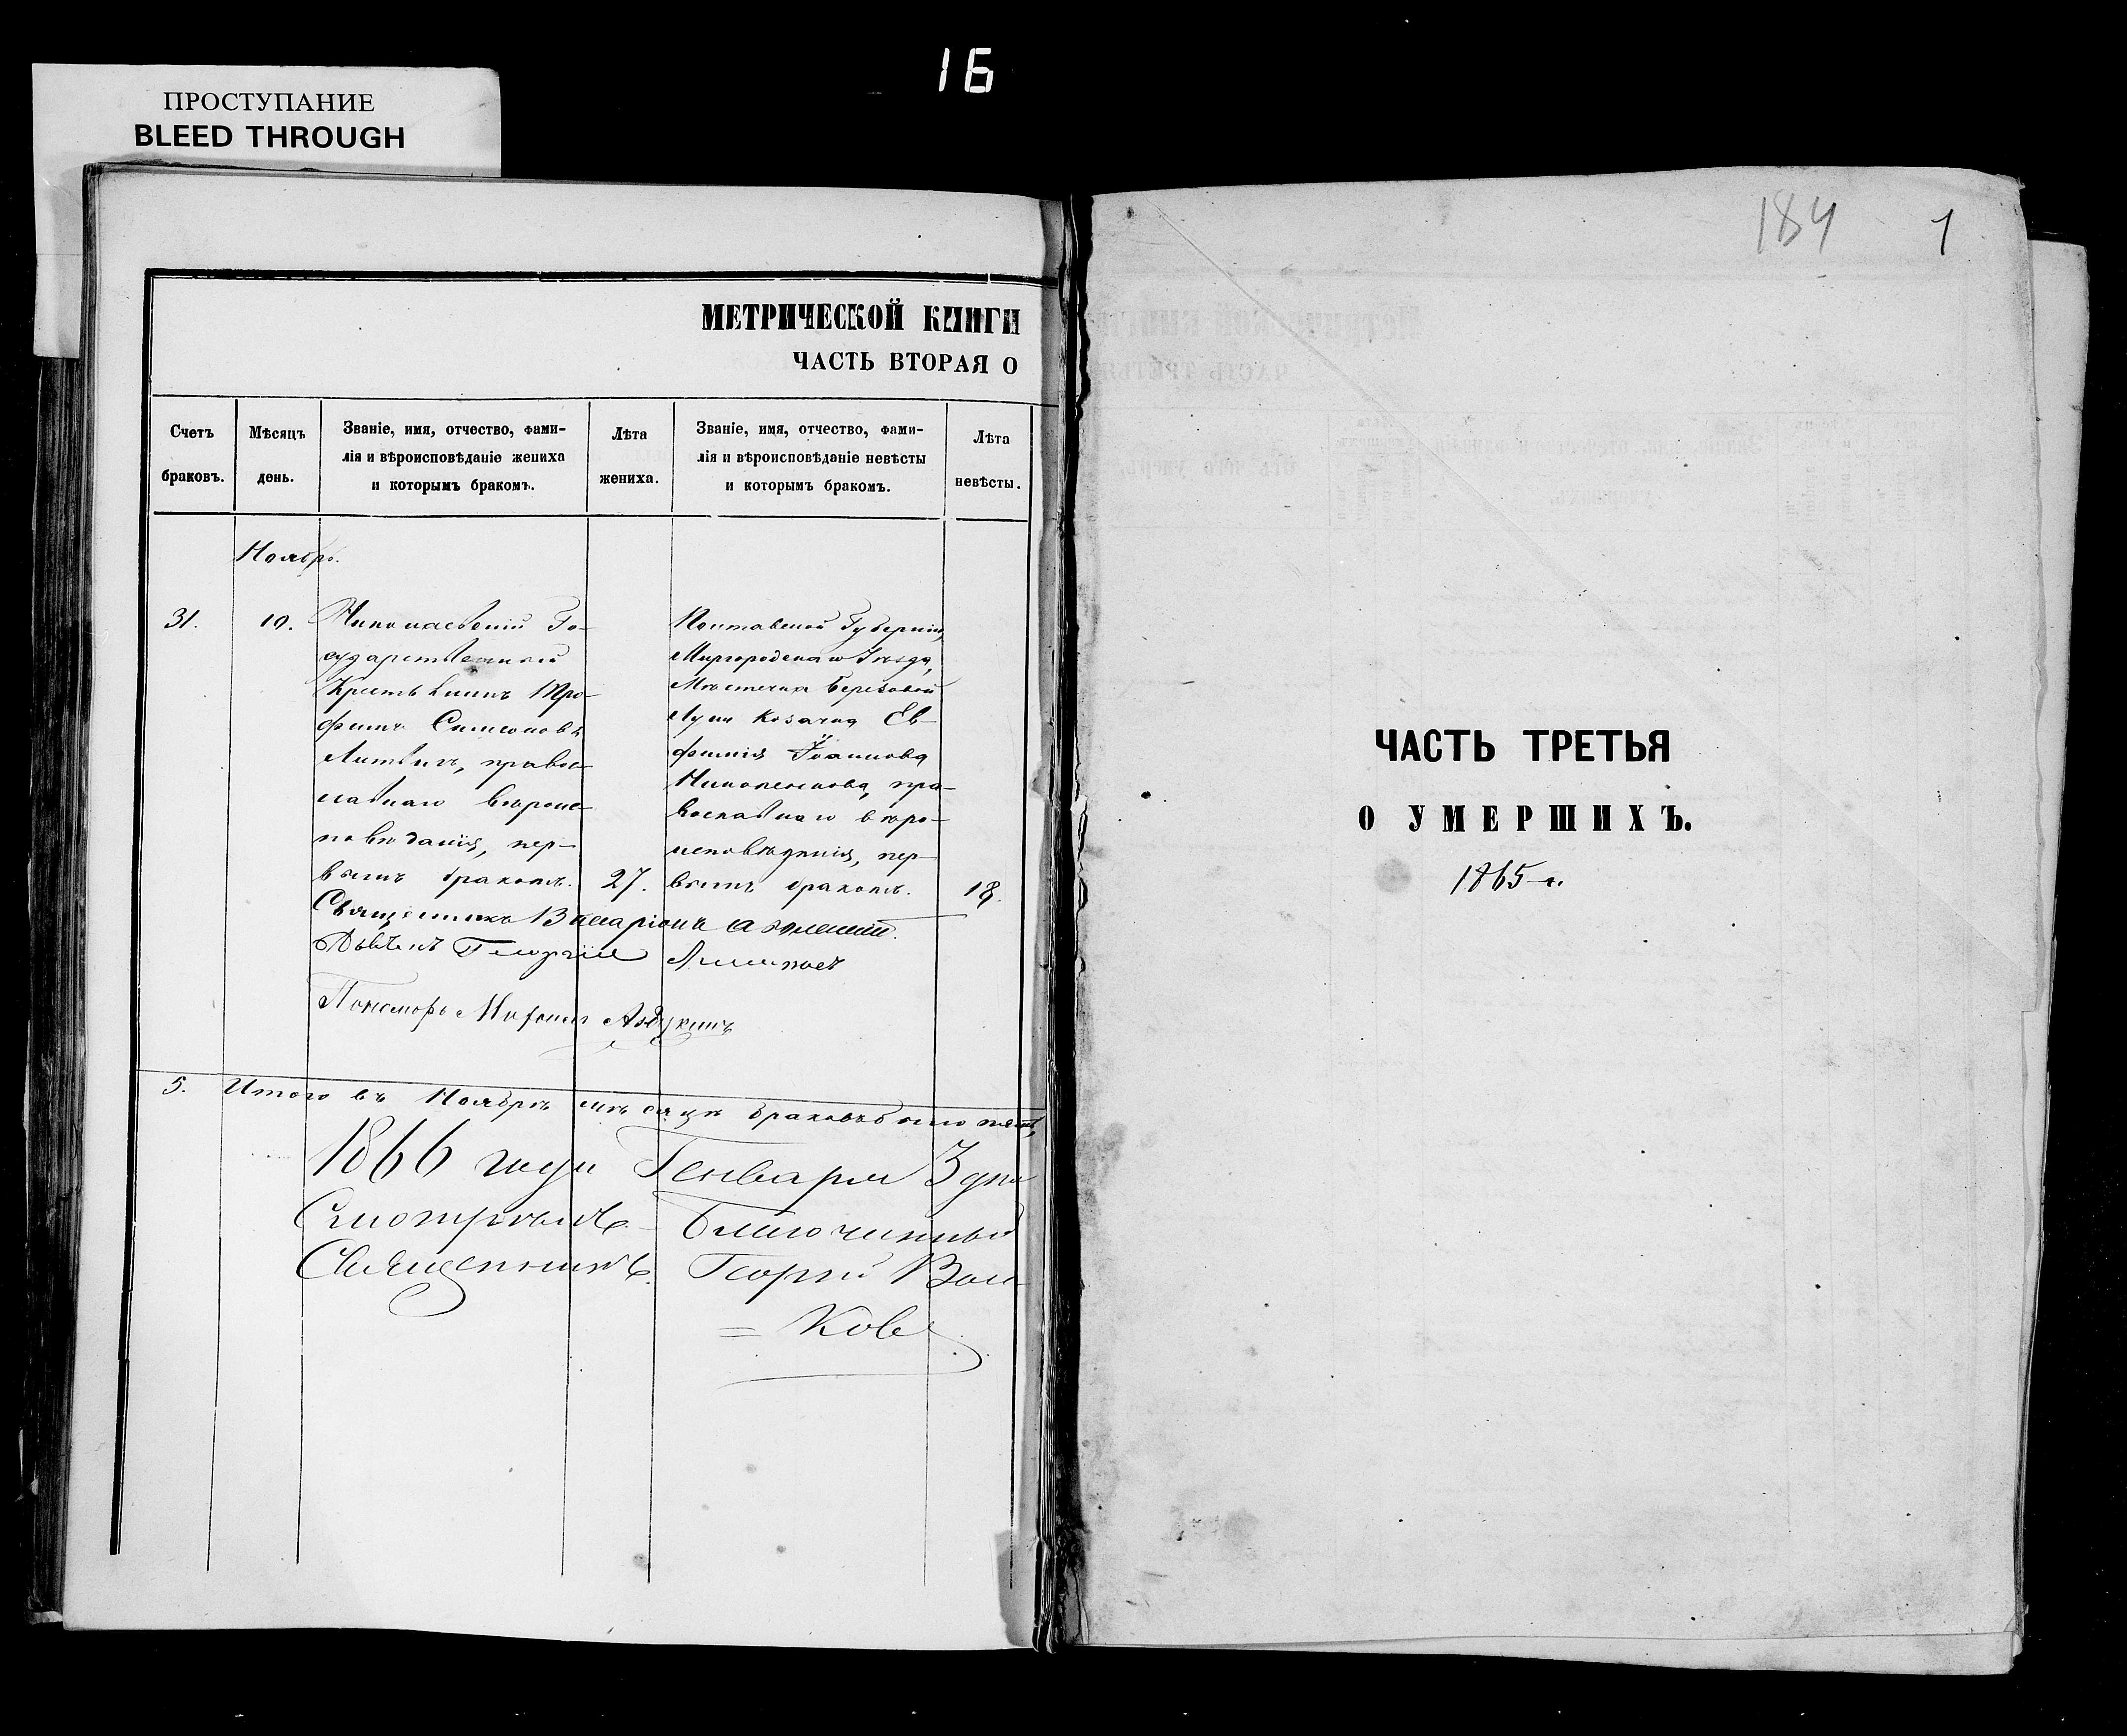 16
ПРОСТУПАНИЕ
BLEED THROUGH
МЕТРИЧЕСКОЙ КНИГИ
ЧАСТЬ ВТОРАЯ О
Счетъ браковъ.
Мѣсяцъ день.
Званіе, имя, отчество, фами-
лія и вѣроисповѣданіе жениха
и которымъ бракомъ.
Лѣта жениха.
Званіе, имя, отчество, фами-
лія и вѣроисповѣданіе невѣсты
и которымъ бракомъ.
Лѣта невѣсты.
Ноябрь.
31.
10.
Николаевскій Го-
сударственный
Крестьянинъ Тро-
фимъ Симеоновъ
Литвинъ, право-
славнаго вѣроис-
повѣданія, пер-
вымъ бракомъ.
27.
Полтавской Губерніи,
Миргородскаго Уѣзда,
Мѣстечка Березовой
Луки Козачка Ев-
фимія Іоаннова
пра-
вославнаго вѣро-
исповѣданія, пер-
вымъ бракомъ.
18.
Священникъ Виссаріонъ
Дьячекъ Георгій
Пономарь
5. Итого въ Ноябрѣ мѣсяцѣ браковъ было пять,
1866 года Генваря 3 дня
Смотрѣлъ Благочинный
Священникъ Георгій Вол-
= ковъ
184
1
ЧАСТЬ ТРЕТЬЯ
О УМЕРШИХЪ.
1865 г.